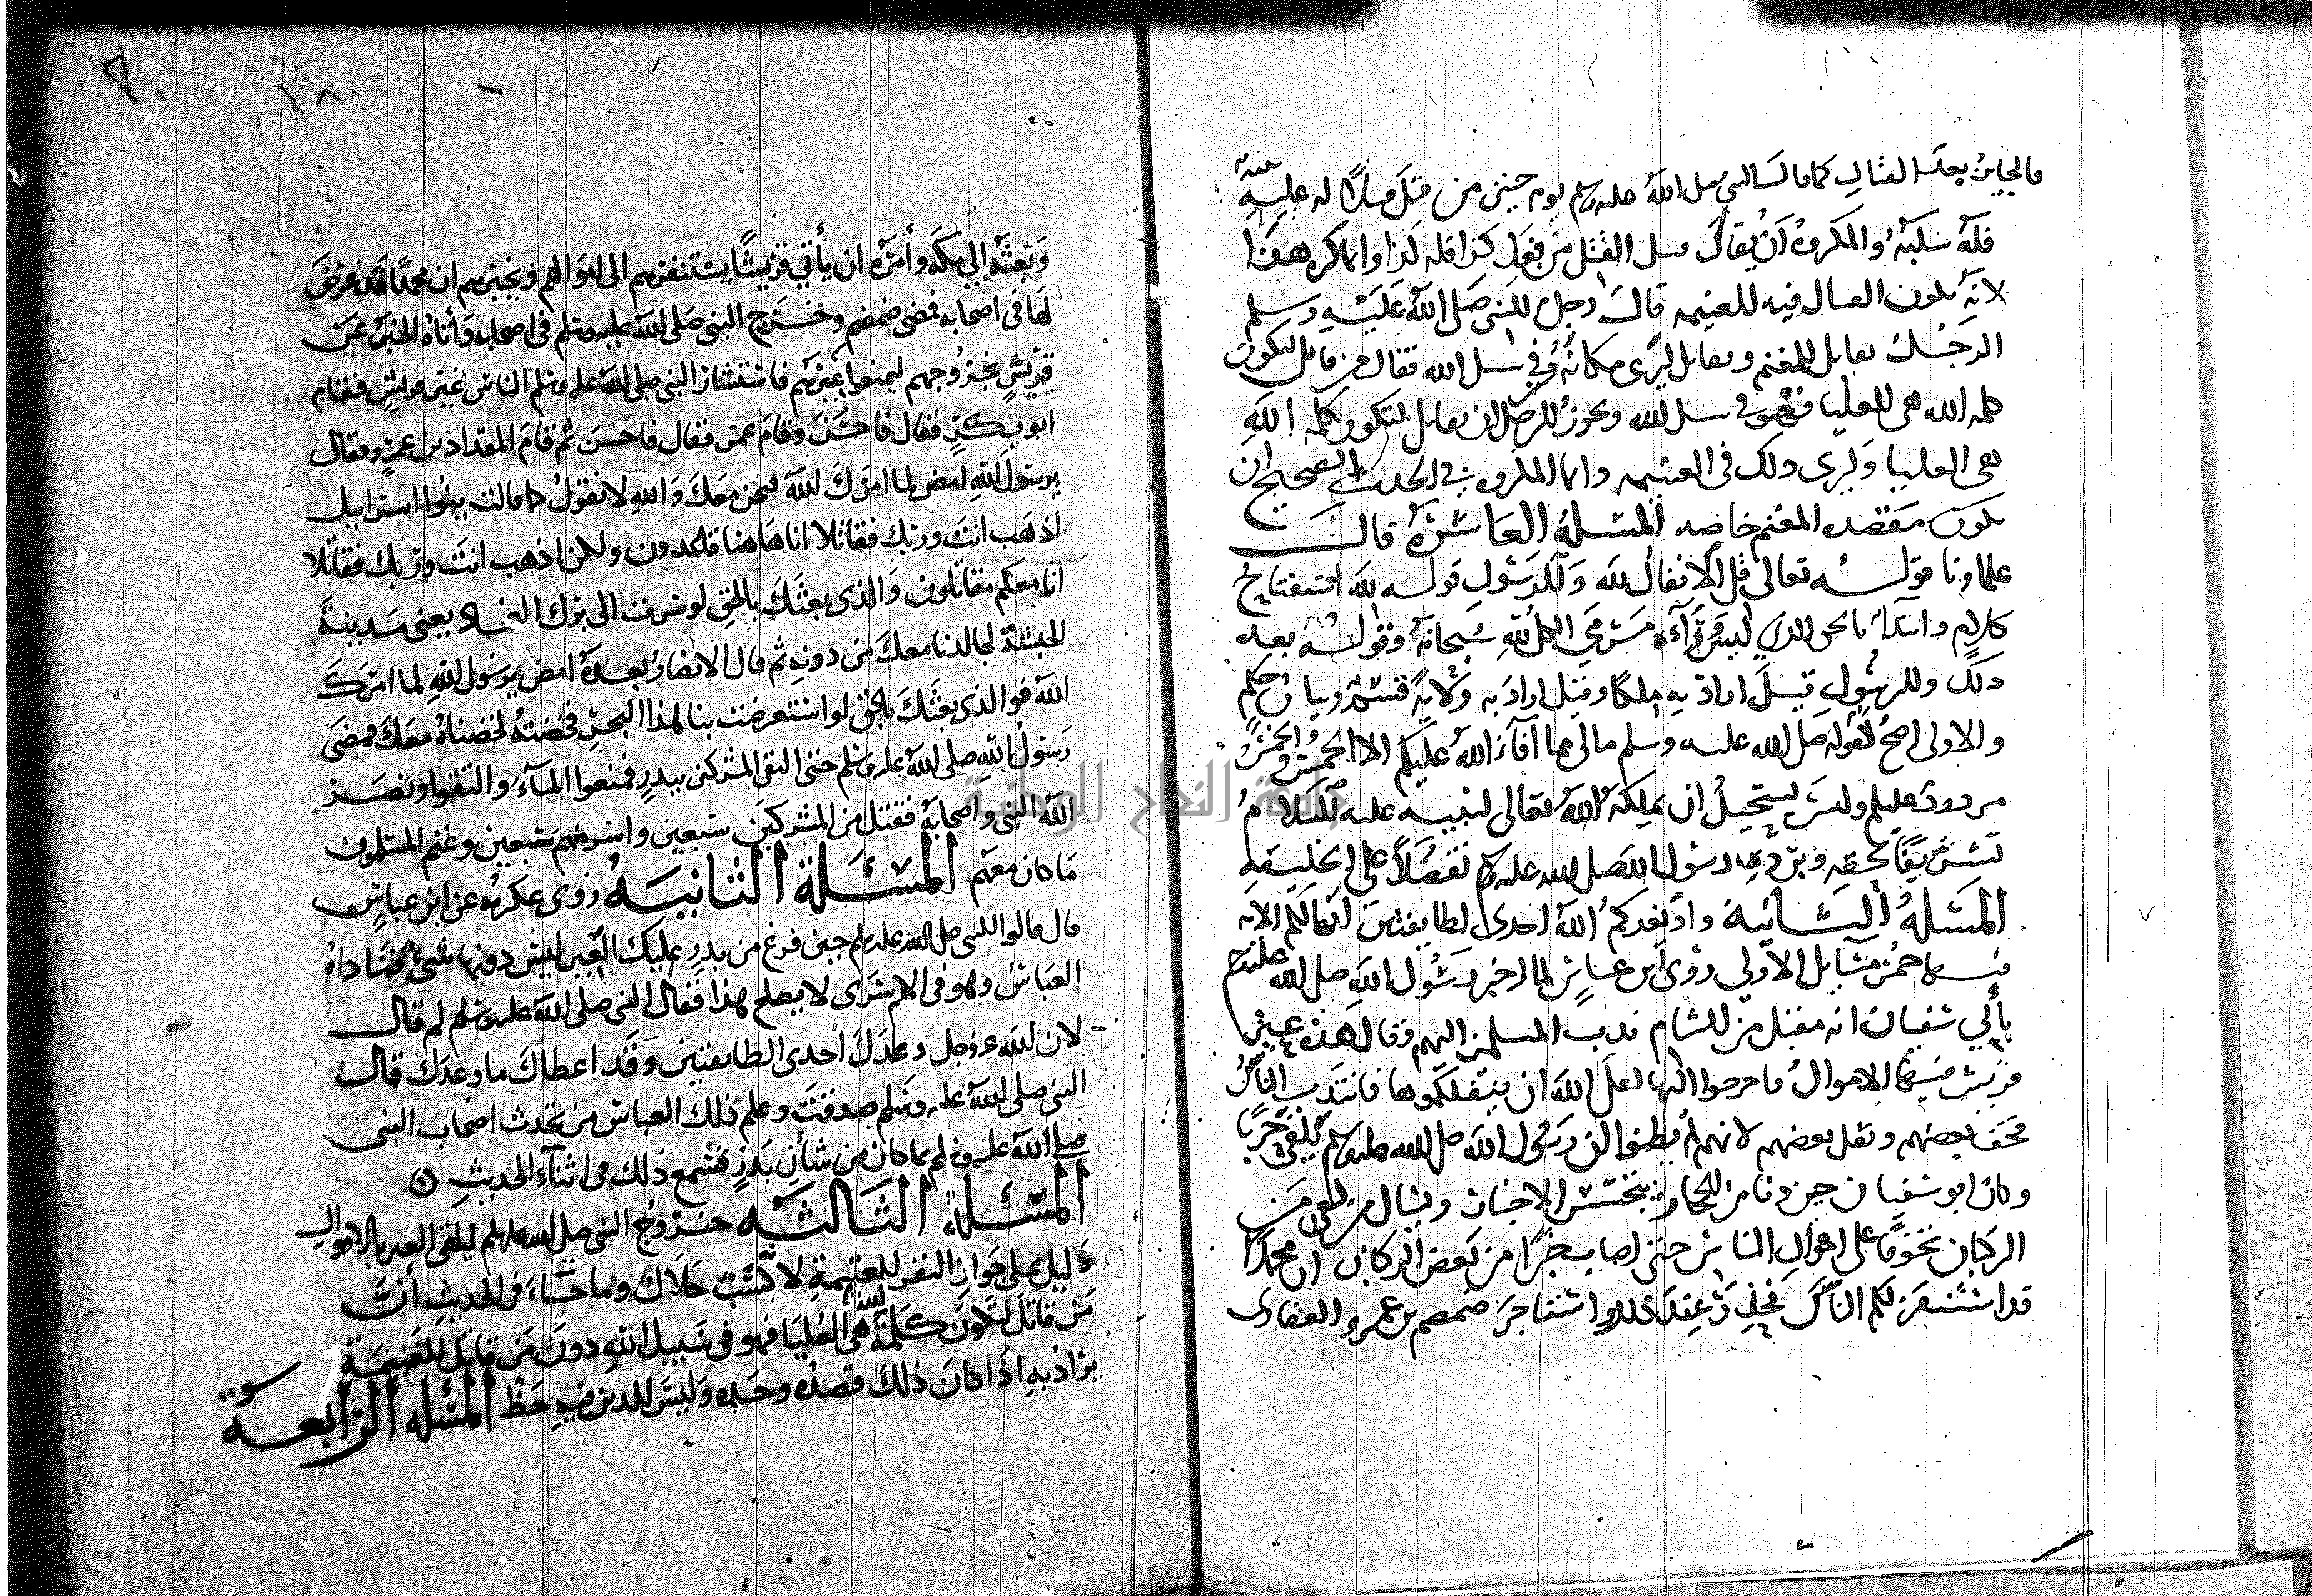 فالجائز بعد القتال كما قال النبي صلى الله عليه وسلم يوم حنين من قتل قتيلا له عليه بينة
فله سلبه والمكروه أن يقال قبل القتل من فعل كذا فله كذا وانما كره هذا
لانه يكون القتال فيه للغنيمه قال رجل للنبي صلى الله عليه وسلم
الرجل يقاتل للمغنم ويقاتل ليرى مكانه في سبيل الله فقال من قاتل لتكون
كلمه الله هي العليا فهو في سبيل الله ويجوز للرجل ان يقاتل لتكون كلمه الله
هي العليا وليرى ذلك في الغنيمه وانما المكروه في الحديث الصحيح ان
يكون مقصده المغنم خاصه المسئلة العاشرة قال
علماونا قوله تعالى قل الانفال لله وللرسول قوله لله استفتاح
كلام وابتداء بالحق الذي ليس وراءه مرمى الكل لله سبحانه وقوله بعد
ذلك وللرسول قيل اراد به ملكا وقيل اراد به ولاية قسم وبيان حكم
والاولى اصح لقوله صلى الله عليه وسلم مالي مما آفاء الله عليكم الا الخمس والخمس
مردود عليكم وليس يستحيل ان يملكه الله تعالى لنبيه عليه السلام
تشريفا لحقه ويرده رسول الله صلى الله عليه وسلم تفضلا على الخليقه
المسئلة الثانية واذ يعدكم الله احدى الطايفتين انها لكم الايه
فيها خمس مسايل الاولى روى ابن عباس لما اخبر رسول الله صلى الله عليه وسلم
بأبي سفيان انه مقبل من الشام ندب المسلمين اليهم وقال هذه عير
قريش فيها الاموال فاخرجوا اليها لعل الله ان ينفلكموها فانتدب الناس
فخف بعضهم وثقل بعضهم لانهم لم يظنوا ان رسول الله صلى الله عليه وسلم يلقى حربا
وكان ابو سفيان حين دنا من الحجاز يتحسس الاخبار ويسال من لقي من
الركبان تخوفا على اموال الناس حتى اصاب خبرا من بعض الركبان ان محمدا
قد استنفر لكم الناس فحذر عند ذلك واستاجر ضمضم بن عمرو الغفارى
وبعثه الي مكه وأمره ان يأتي قريشا يستنفرهم الى اموالهم ويخبرهم ان محمدا قد عرض
لها في اصحابه فمضى ضمضم وخرج النبي صلى الله عليه وسلم في اصحابه وأتاه الخبر عن
قريش بخروجهم ليمنعوا عيرهم فاستشار النبي صلى الله عليه وسلم الناس غير قريش فقام
ابو بكر فقال فاحسن وقام عمر فقال فاحسن ثم قام المقداد بن عمرو فقال
يرسول الله امض لما امرك الله فنحن معك والله لا نقول كما قالت بنوا اسراييل
اذهب انت وربك فقاتلا انا هاهنا قاعدون ولكن اذهب انت وربك فقاتلا
انا معكم مقاتلون والذي بعثك بالحق لو سرت الى برك الغماد يعني مدينة
الحبشة لجالدنا معك من دونه ثم قال الانصار بعده امض يرسول الله لما امرك
الله فوالذي بعثك بالحق لو استعرضت بنا هذا البحر فخضته لخضناه معك فمضى
رسول الله صلى الله عليه وسلم حتى التقى المشركين ببدر فمنعوا المآء والتقوا ونصر
الله النبي واصحابه فقتل من المشركين سبعين واسر منهم سبعين وغنم المسلمون
ما كان معهم المسئلة الثانية روى عكرمه عن ابن عباس
قال قالوا للنبي صلى الله عليه وسلم حين فرغ من بدر عليك العير ليس دونها شئ فناداه
العباس وهو في الاسرى لا يصلح هذا فقال النبي صلى الله عليه وسلم لم قال
لان الله عز وجل وعدك احدى الطايفتين وقد اعطاك ما وعدك قال
النبي صلى الله عليه وسلم صدقت وعلم ذلك العباس من تحدث اصحاب النبي
صلى الله عليه وسلم بما كان من شأن بدر فسمع ذلك في اثنآء الحديث
المسئلة الثالثه خروج النبي صلى الله عليه وسلم ليلقى العير بالاموال
دليل على جواز النفر للغنيمة لانه كسب حلال وما جاء في الحديث أن
من قاتل لتكون كلمة الله هي العليا فهو في سبيل الله دون من قاتل للغنيمة
يراد به اذا كان ذلك قصده وحده وليس للدين فيه حظ المسئله الرابعة